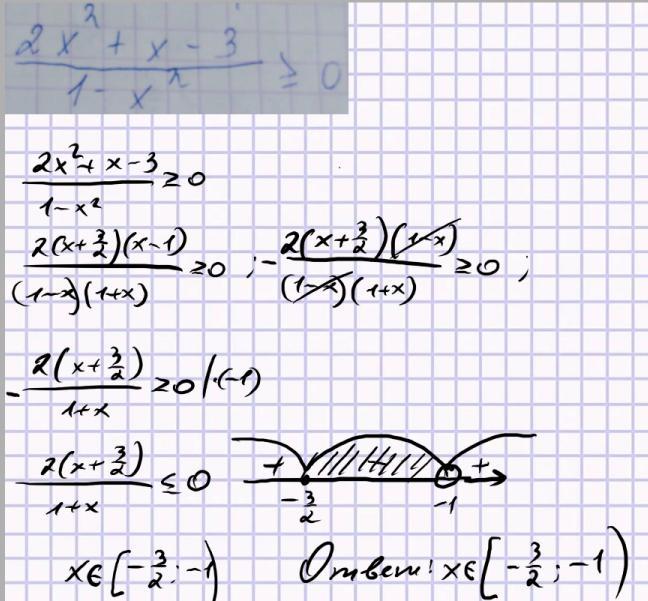 2x² + x - 3 / 1 - x² ≥ 0
2x² + x - 3 / 1 - x² ≥ 0
2(x + 3/2)(x - 1) / (1 - x)(1 + x) ≥ 0 ; - 2(x + 3/2)(1 - x) / (1 - x)(1 + x) ≥ 0 ;
- 2(x + 3/2) / 1 + x ≥ 0 / · (-1)
2(x + 3/2) / 1 + x ≤ 0
+ +
- 3/2 -1
x ∈ [- 3/2 ; -1)
Ответ: x ∈ [- 3/2 ; -1)